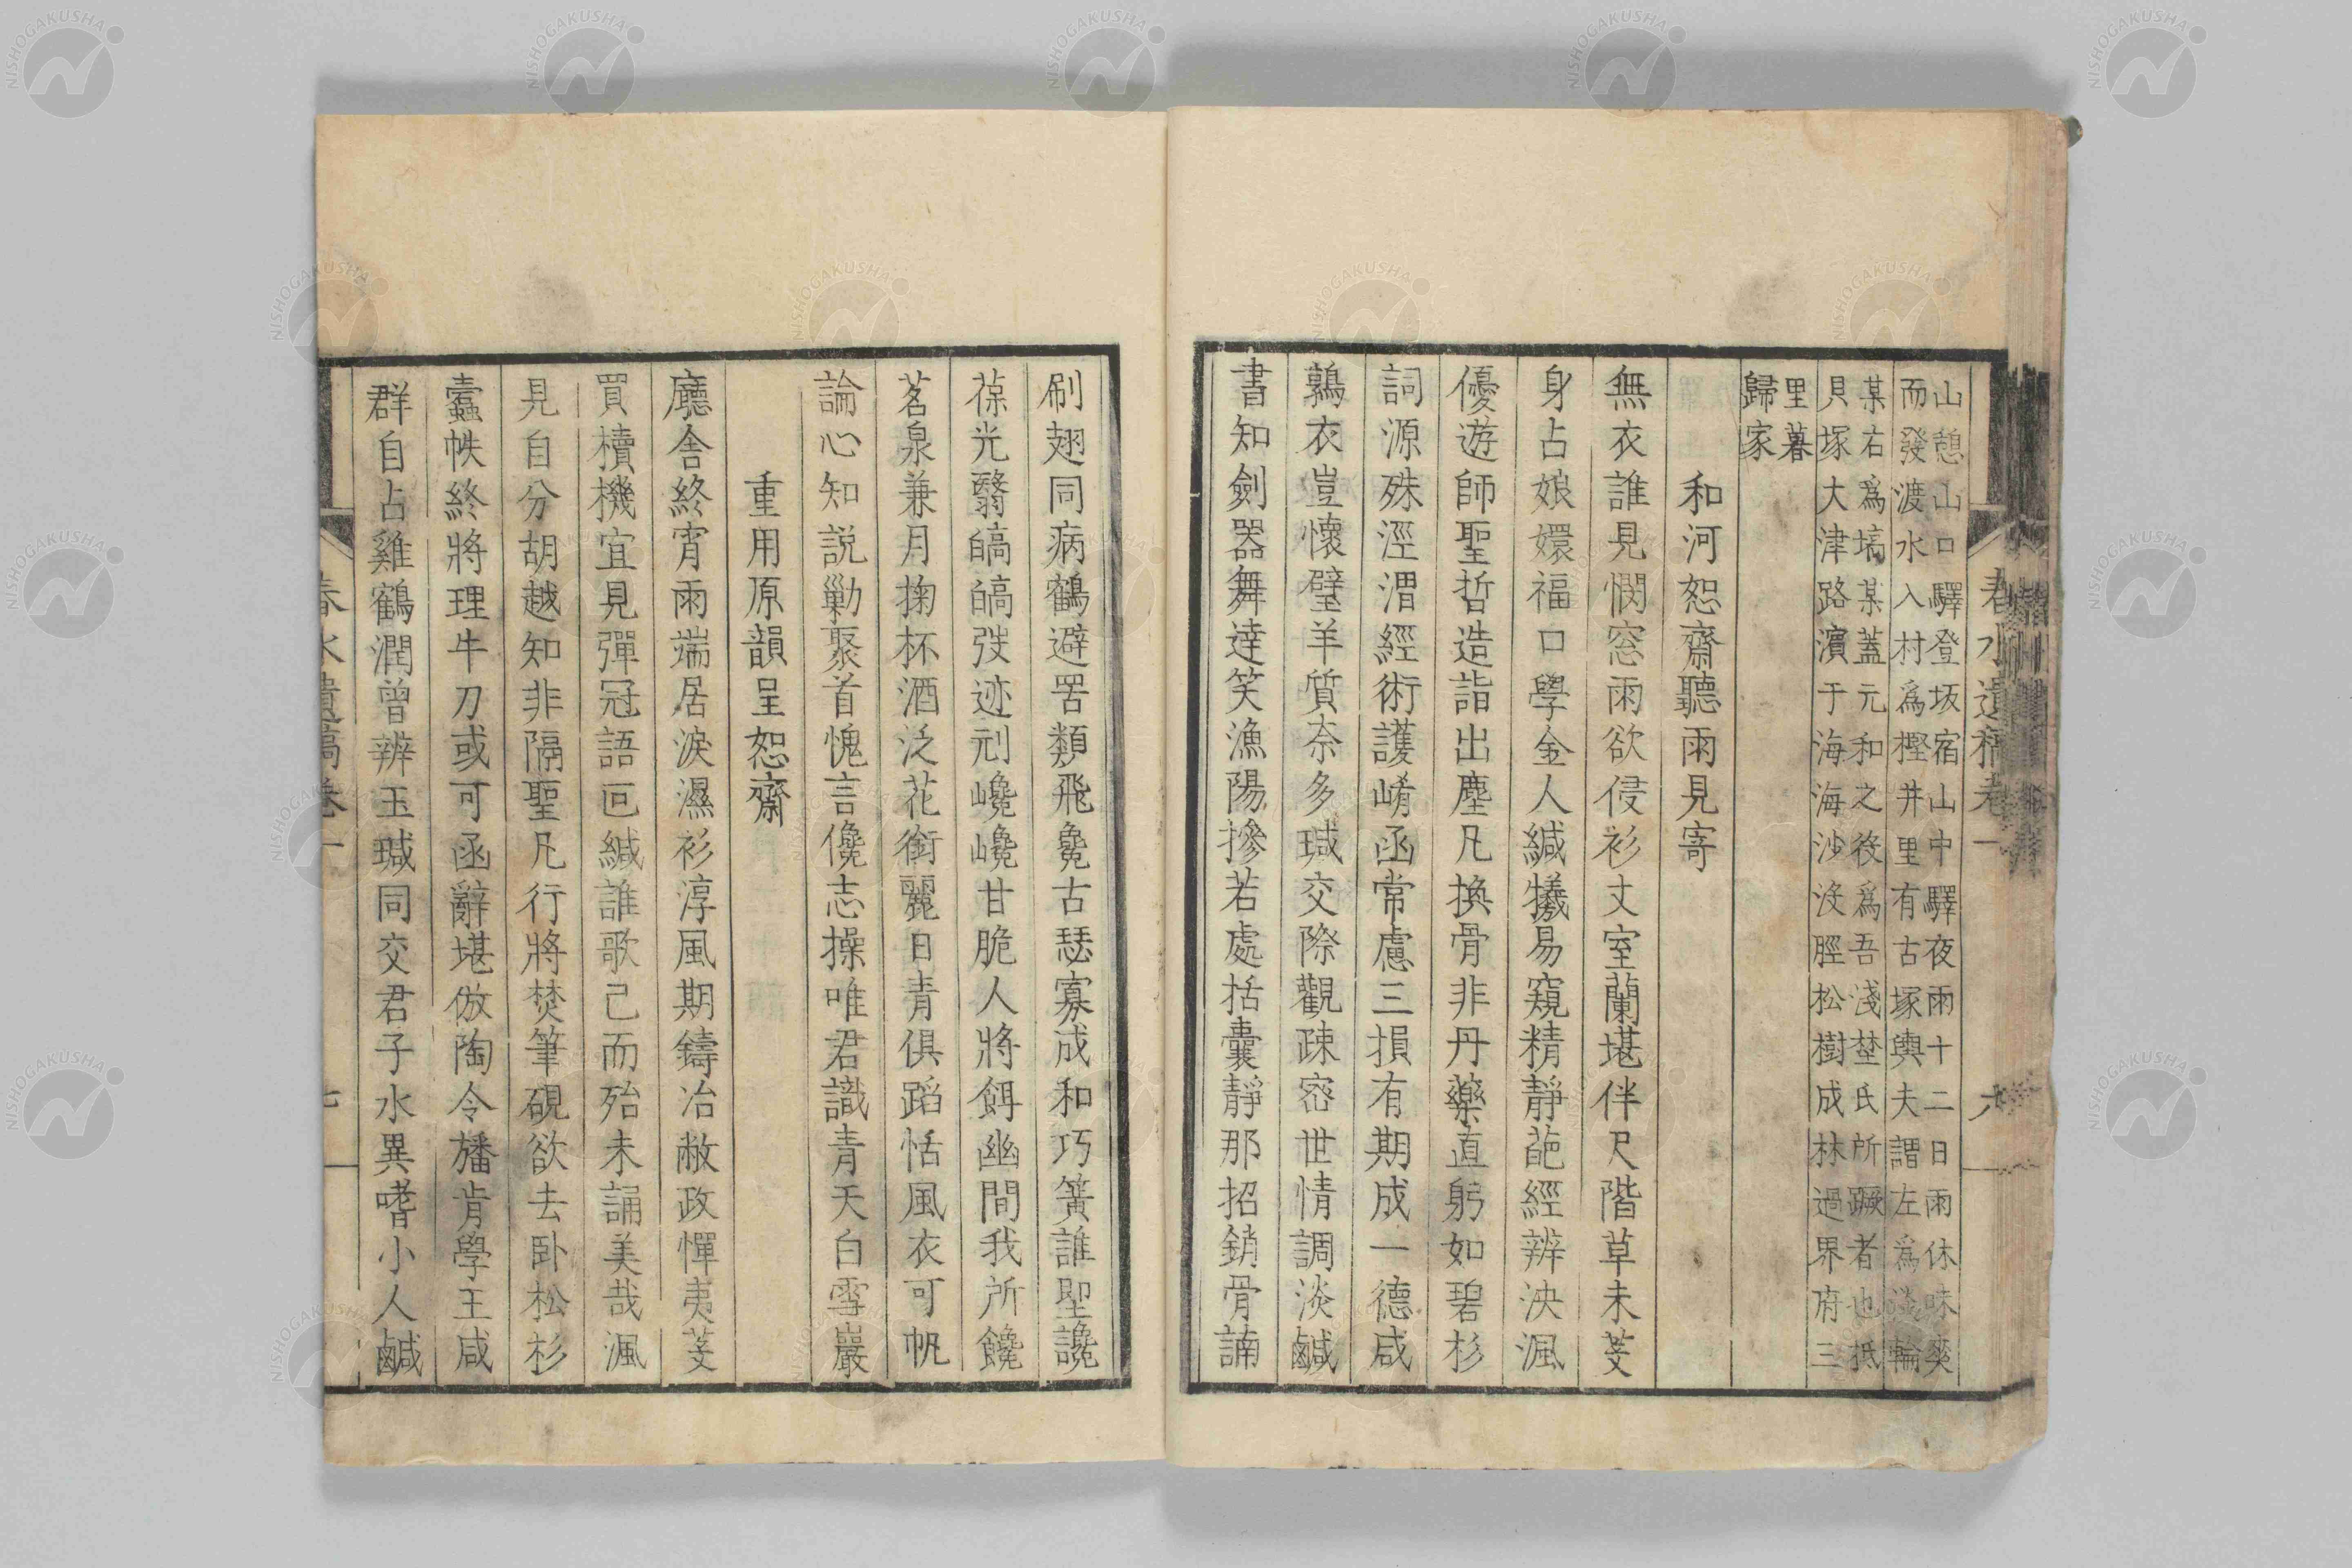 山憩山口驛登坂宿山中驛夜雨十二日雨休昧爽
而發渡水入村爲樫井里有古塚輿夫謂左爲淡輪
某右爲塙某蓋元和之役爲吾淺埜氏所蹶者也抵
貝塚大津路濱于海海沙沒脛松樹成林過界府三
里暮
歸家
和河恕齋聽雨見寄
無衣誰見憫窓雨欲侵衫丈室蘭堪伴尺階草未芟
身占娘嬛福口學金人緘犧易窺精靜葩經辨泱渢
優遊師聖哲造詣出塵凡換骨非丹藥直躬如碧杉
詞源殊涇渭經術護崤函常慮三損有期成一德咸
鶉衣豈懷璧羊質奈多瑊交際觀疎宻世情調淡鹹
書知劍器舞達笑漁陽摻若處括囊靜那招銷骨諵
刷翅同病鶴避罟類飛毚古瑟寡成和巧簧誰聖讒
葆光翳皜皜弢迹刓巉巉甘脆人將餌幽間我所饞
茗泉兼月掬杯酒泛花銜麗日青俱蹈恬風衣可帆
論心知説勦聚首愧言儳志操唯君識青天白雪巖
重用原韻呈恕齋
廳舎終宵雨端居淚濕衫淳風期鑄冶敝政憚夷芟
買櫝機宜見彈冠語叵緘誰歌己而殆未誦美哉渢
見自分胡越知非隔聖凡行將焚筆硯欲去卧松杉
蠹帙終將理牛刀或可函辭堪倣陶令旛肯學王咸
群自占雞鶴潤曾辨玉瑊同交君子水異嗜小人鹹
春水遺稿卷一
七
春水遺稿卷一
六